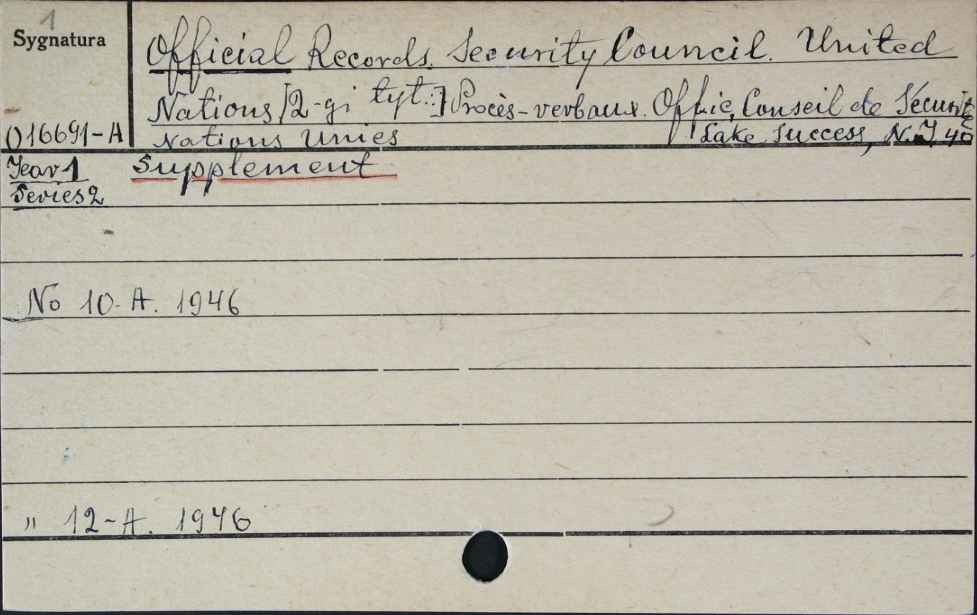 1
Sygnatura
Official Records. Security Council. United
Nations [2-gi tyt.:] Procès-verbaux. Offic. Conseil de Sécurité
016691-A
Nations Unies
Lake Success, N.Y. 40
Year 1
Supplement
Series 2
No 10-A. 1946
" 12-A. 1946